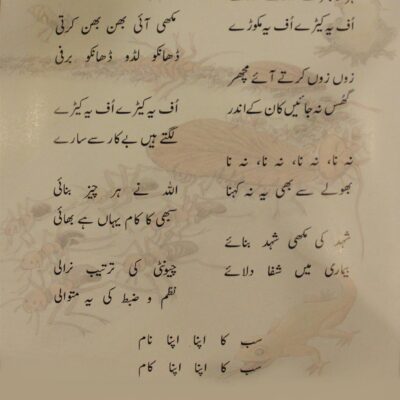 اُف یہ کیڑے اُف یہ مکوڑے
مکھی آئی بھن بھن کرتی
ڈھانکو لڈو ڈھانکو برفی
زوں زوں کرتے آئے مچھر
گھُس نہ جائیں کان کے اندر
اُف یہ کیڑے اُف یہ کیڑے
لگتے ہیں بے کار سے سارے
نہ نا، نہ نا، نہ نا، نہ نا
بھولے سے بھی یہ نہ کہنا
اللہ نے ہر چیز بنائی
سبھی کا کام یہاں ہے بھائی
شہد کی مکھی شہد بنائے
بیماری میں شفا دلائے
چیونٹی کی ترتیب نرالی
نظم و ضبط کی یہ متوالی
سب کا اپنا اپنا نام
سب کا اپنا اپنا کام